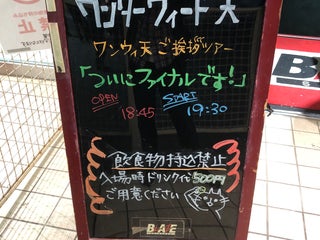 ワンダーウィード天
ワンウィ天ご挨拶ツアー
「ついにファイナルです!」
OPEN START
18:45 19:30
飲食物持込禁止
入場時ドリンク代500円
ご用意ください
BAE
止
BA